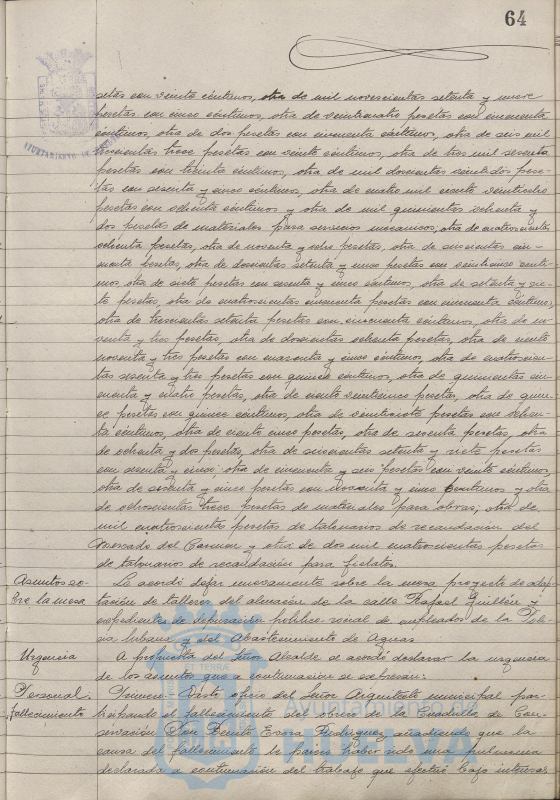 64
setas con veinte céntimos, otra de mil novecientas setenta y nueve
pesetas con cinco céntimos, otra de veinticuatro pesetas con cincuenta
céntimos, otra de dos pesetas con cincuenta céntimos, otra de seis mil
trescientas trece pesetas con veinte céntimos, otra de tres mil sesenta
pesetas con treinta céntimos, otra de mil doscientas veintidos pese-
tas con sesenta y cinco céntimos, otra de cuatro mil ciento veintiocho
pesetas con ochenta céntimos y otra de mil quinientas ochenta y
dos pesetas de materiales para servicios mecanicos; otra de cuatrocientas
ochenta pesetas, otra de noventa y ocho pesetas, otra de seiscientas cin-
cuenta pesetas, otra de doscientas setenta y cinco pesetas con veinticinco cénti-
mos, otra de siete pesetas con sesenta y cinco céntimos, otra de setenta y sie-
te pesetas, otra de cuatrocientas cincuenta pesetas con cincuenta céntimos,
otra de trescientas setenta pesetas con cincuenta céntimos, otra de no-
venta y tres pesetas, otra de doscientas ochenta pesetas, otra de ciento
noventa y tres pesetas con cuarenta y cinco céntimos, otra de cuatrocien-
tas sesenta y tres pesetas con quince céntimos, otra de quinientas cin-
cuenta y cuatro pesetas, otra de ciento veinticinco pesetas, otra de quin-
ce pesetas con quince céntimos, otra de veintisiete pesetas con ochen-
ta céntimos, otra de ciento cinco pesetas, otra de sesenta pesetas, otra
de ochenta y dos pesetas, otra de seiscientas setenta y siete pesetas
con sesenta y cinco; otra de cincuenta y seis pesetas con veinte céntimos,
otra de sesenta y cinco pesetas con noventa y cinco céntimos y otra
de ochocientas trece pesetas de materiales para obras; otra de
mil cuatrocientas pesetas de talonarios de recaudación del
Mercado del Carmen y otra de dos mil cuatrocientas pesetas
de talonarios de recaudación para fielatos.
Asuntos so-
bre la mesa
Se acordó dejar nuevamente sobre la mesa, proyecto de adap-
tación de talleres del almacén de la calle Rafael Guillén y
expedientes de depuración politico-social de empleados de la Poli-
cia Urbana y del Abastecimiento de Aguas.
Urgencia
A propuesta del Señor Alcalde se acordó declarar la urgencia
de los asuntos que a continuación se expresan:
Personal.
fallecimiento
Primero. Visto oficio del Señor Arquitecto municipal par-
ticipando el fallecimiento del obrero de la Cuadrilla de Con-
servación Don Benito Rodriguez, añadiendo que la
causa del fallecimiento le parece haber sido una pulmonia
declarada a continuación del trabajo que efectuó bajo intensas
Ayuntamiento de
HUELVA